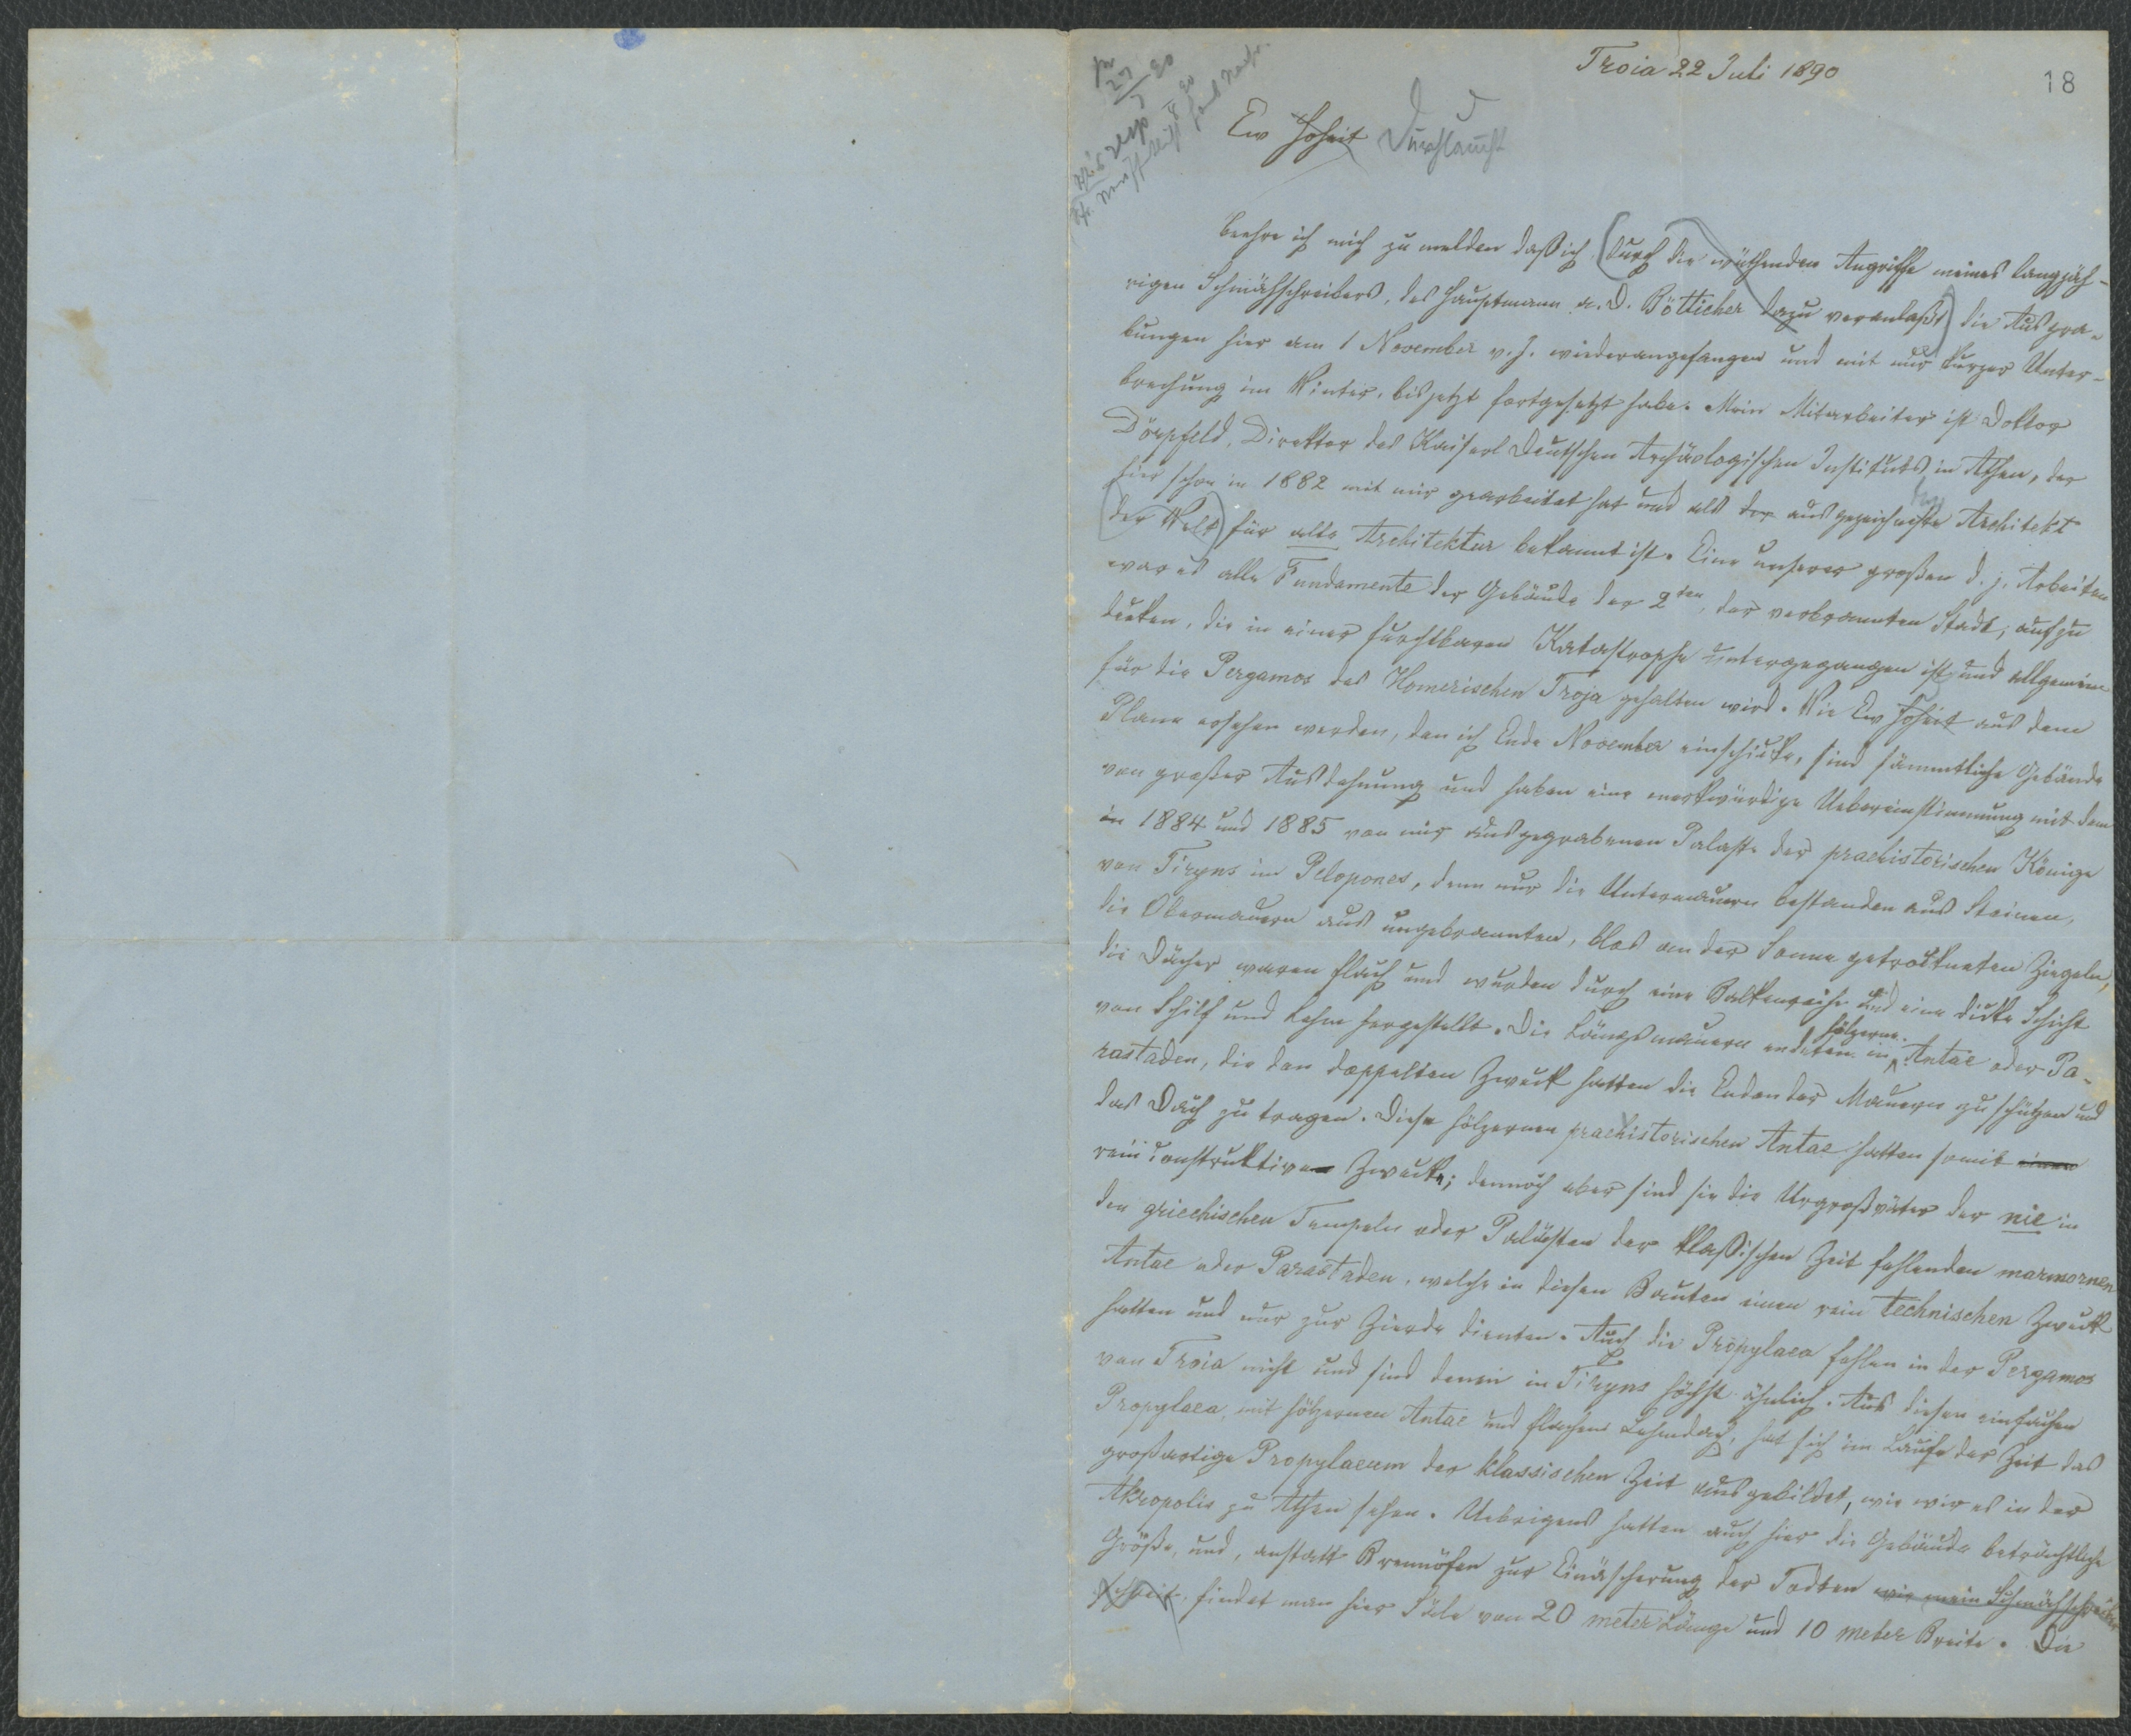 Troia 22 Juli 1890
18
Ew Hoheit Durchlaucht
beehre ich mich zu melden daß ich (durch die wüthenden Angriffe meines langjäh-
rigen Schmähschreibers, des Hauptmann a. D. Bötticher dazu veranlaßt) die Ausgra-
bungen hier am 1 November v. J. wiederangefangen und mit nur kurzer Unter-
brechung im Winter, bis jetzt fortgesetzt habe. Mein Mitarbeiter ist Doktor
Dörpfeld, Direktor des Kaiserl Deutschen Archäologischen Instituts in Athen, der
hier schon in 1882 mit mir gearbeitet hat und als der ausgezeichnetste Architekt
(der Welt) für alte Architektur bekannt ist. Eine unserer großen d. j. Arbeiten
war es alle Fundamente der Gebäude der 2ten, der verbrannten Stadt, aufzu
decken, die in einer furchtbaren Katastrophe untergegangen ist und allgemein
für die Pergamos des Homerischen Troja gehalten wird. Wie Ew Hoheit aus dem
Plane ersehen werden, den ich Ende November einschicke, sind sämmtliche Gebäude
von großer Ausdehnung und haben eine merkwürdige Uebereinstimmung mit dem
in 1884 und 1885 von mir ausgegrabenen Palaste der praehistorischen Könige
von Tiryns im Pelopones, denn nur die Untermauern bestanden aus Steinen,
die Obermauern aus ungebrannten, blos an der Sonne getrockneten Ziegeln,
die Dächer waren flach und wurden durch eine Balkenreihe und eine dicke Schicht
von Schilf und Lehm hergestellt. Die Längsmauern endeten in hölzerne Antae oder Pa-
rastaden, die den doppelten Zweck hatten die Enden der Mauern zu schützen und
das Dach zu tragen. Diese hölzernen praehistorischen Antae hatten somit einen
rein constructiven Zwecke; dennoch aber sind sie die Urgroßväter der nie in
den griechischen Tempeln oder Palästen der klaßischen Zeit fehlenden marmornen
Antae oder Parastaden, welche in diesen Bauten einen rein technischen Zweck
hatten und nur zur Zierde dienten. Auch die Propylaea fehlen in der Pergamos
von Troia nicht und sind denen in Tiryns höchst ähnlich. Aus diesen einfachen
Propylaea, mit hölzernen Antae und flachem Lehmdach, hat sich im Laufe der Zeit das
großartige Propylaeum der klassischen Zeit ausgebildet, wie wir es in der
Akropolis zu Athen sehen. Uebrigens hatten auch hier die Gebäude beträchtliche
Größe, und, anstatt Brennöfen zur Einäscherung der Todten wie mein Schmähschreiber
schreit, findet man hier Säle von 20 meter Länge und 10 meter Breite. Die